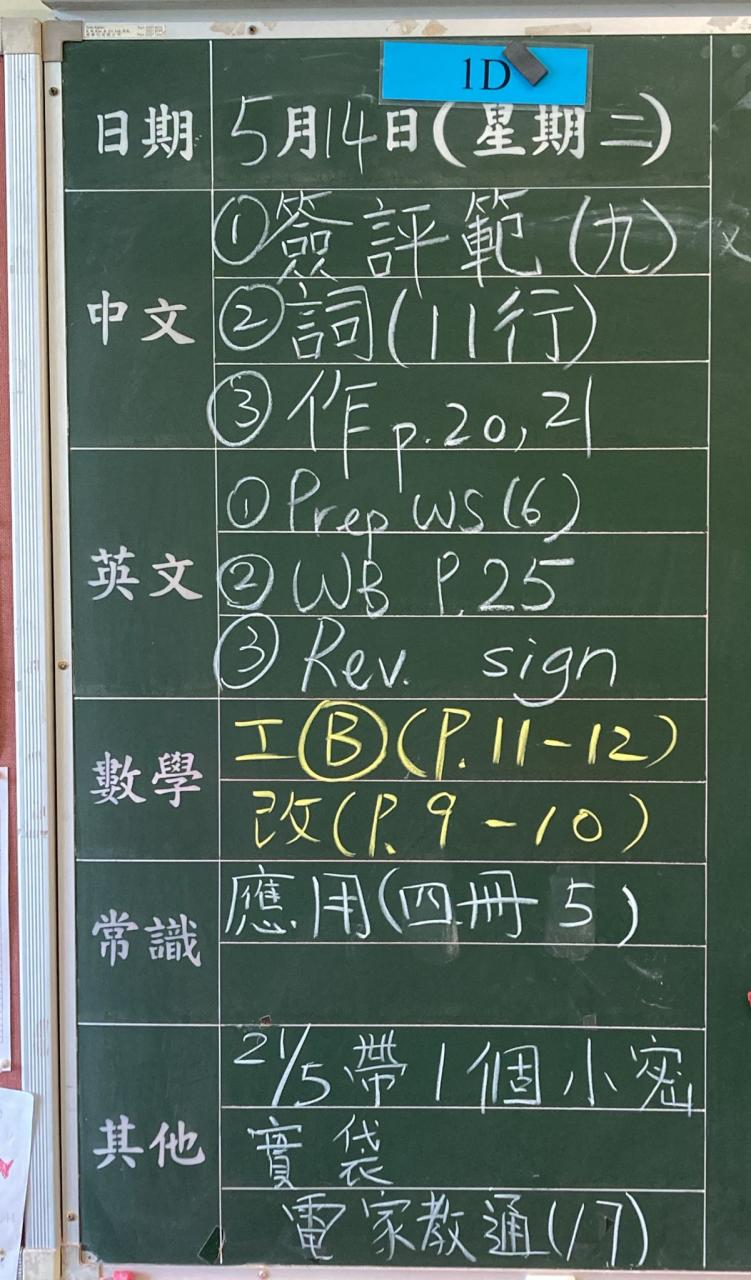 1D
日期 5月14日(星期二)
中文 ①簽評範(九)
②詞(11行)
③作p.20,21
英文 ①Prep WS(6)
②WB P.25
③Rev. sign
數學 工Ⓑ(P.11-12)
改(P.9-10)
常識 應用(四冊5)
其他 21/5帶1個小密
實袋
電家教通(17)